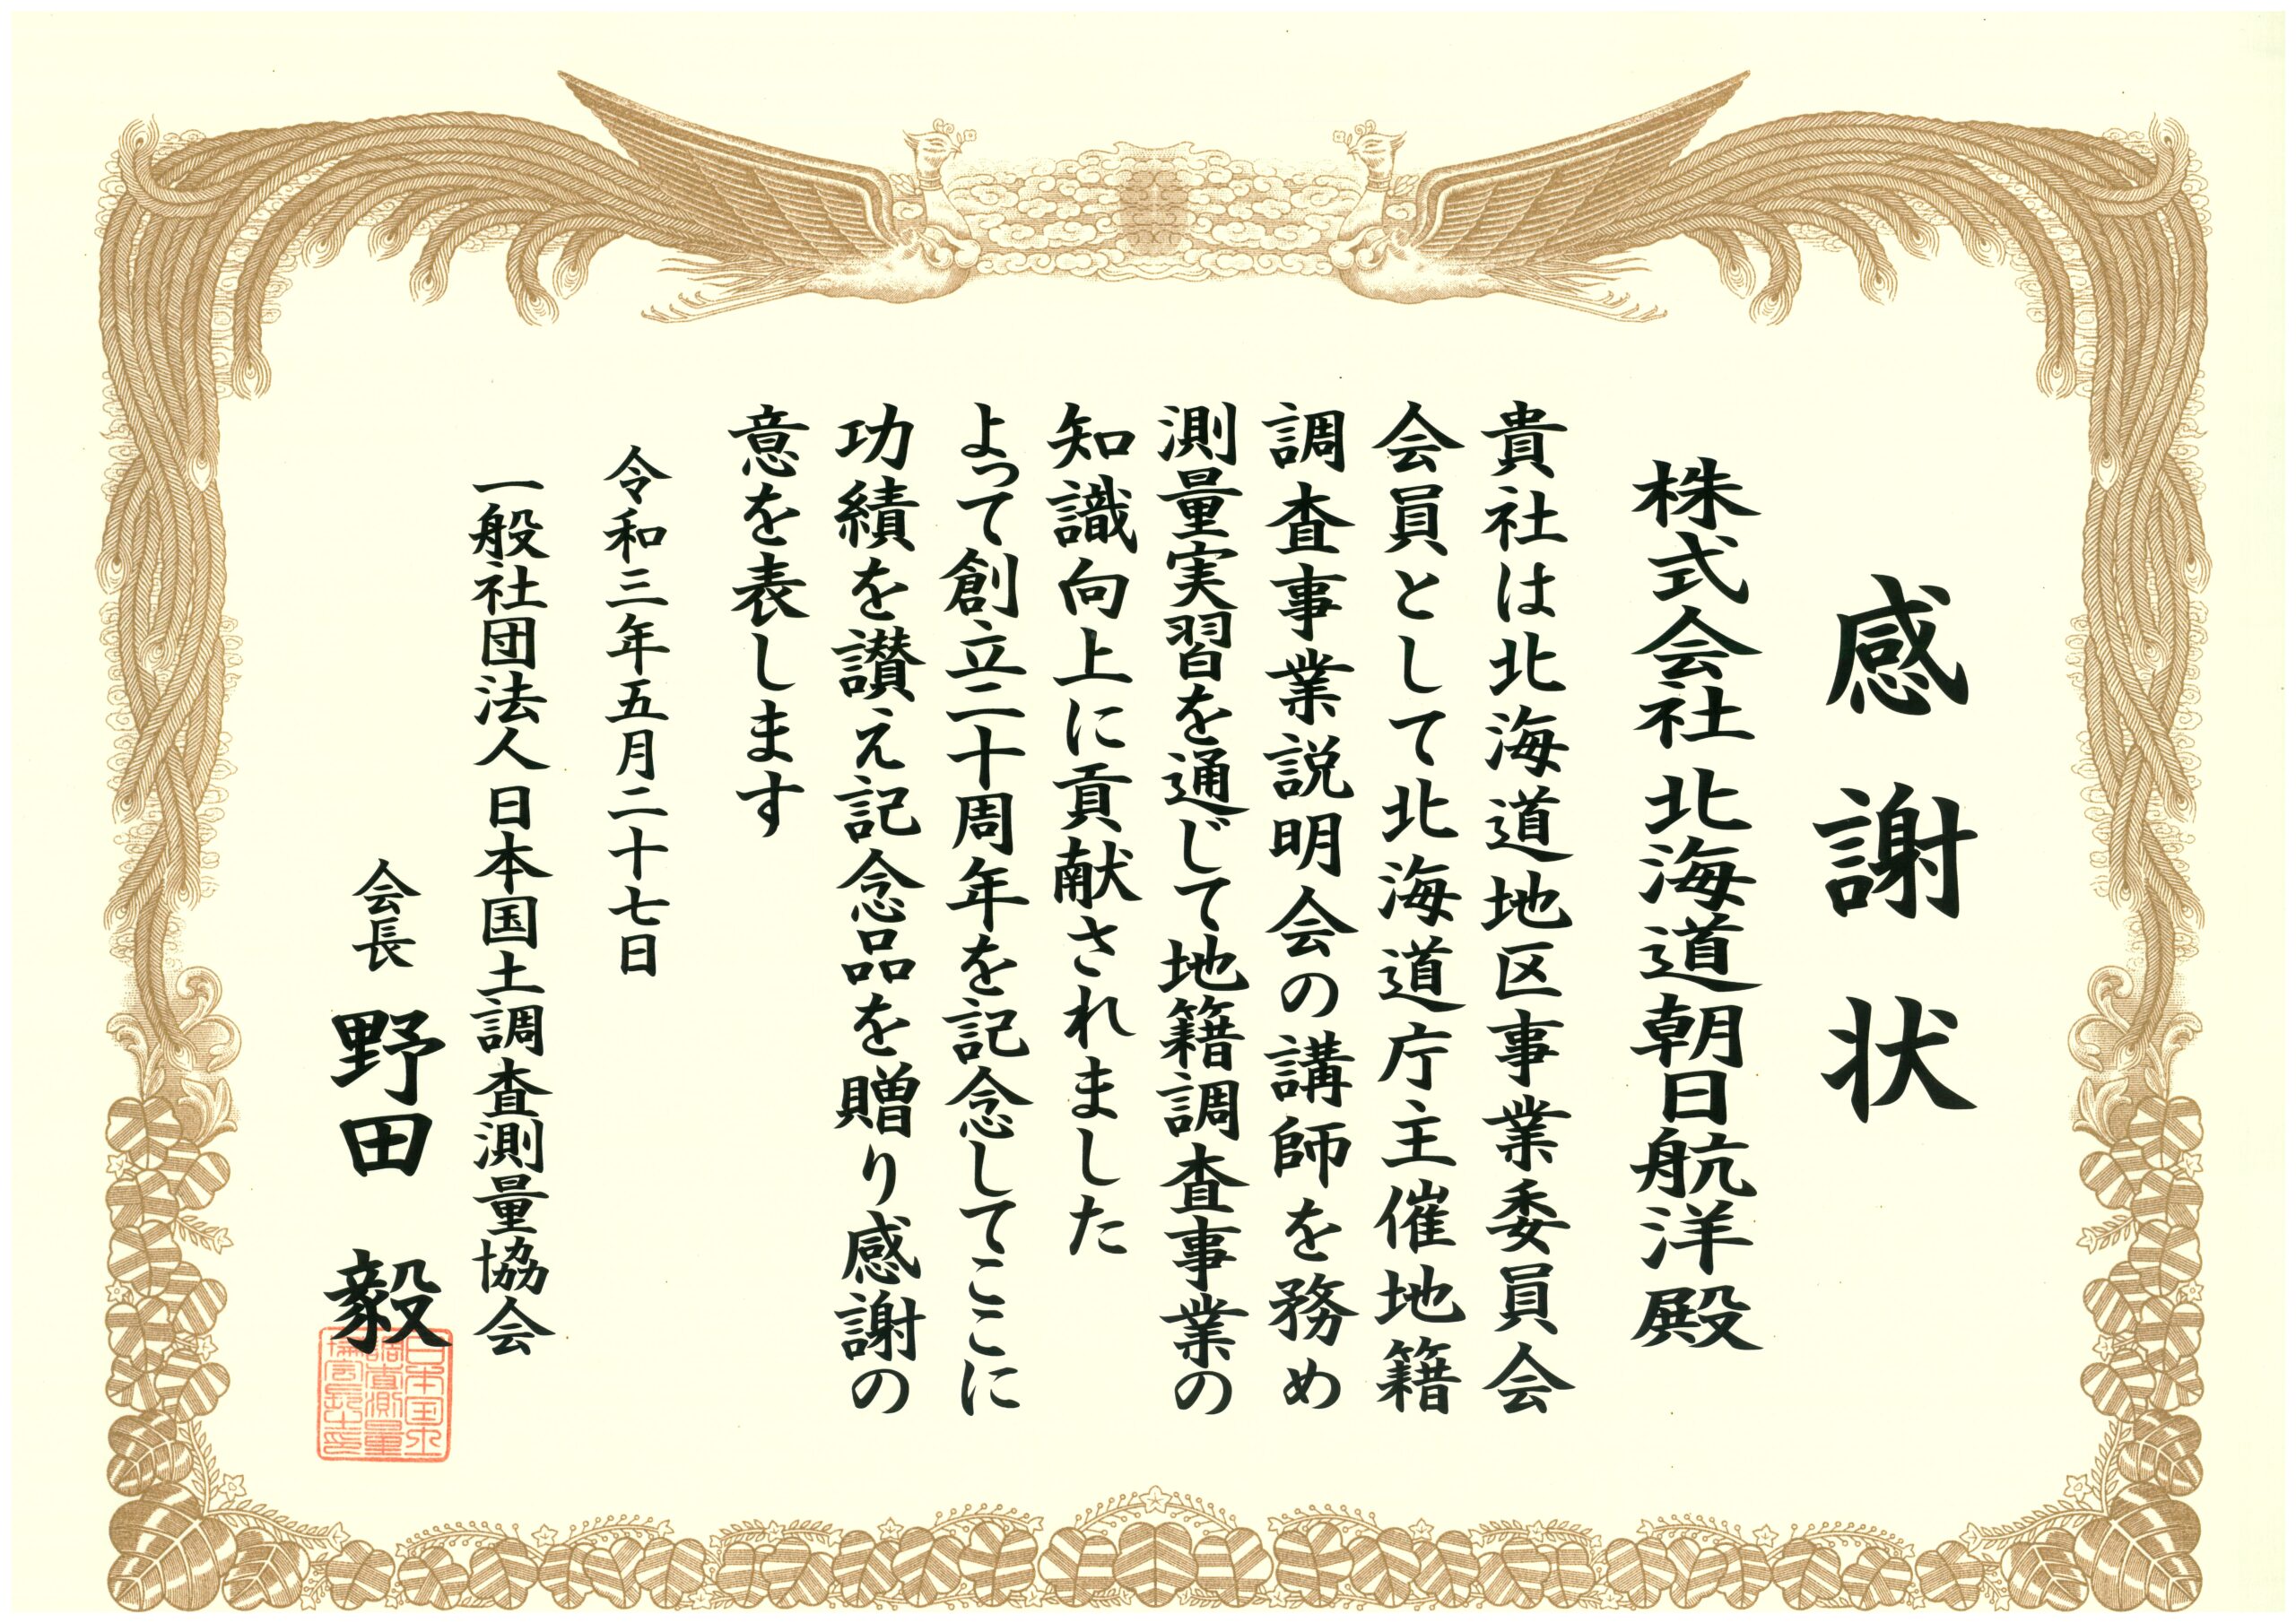 感謝状
株式会社 北海道朝日航洋殿
貴社は北海道地区事業委員会
会員として北海道庁主催地籍
調査事業説明会の講師を務め
測量実習を通じて地籍調査事業の
知識向上に貢献されました
よって創立二十周年を記念してここに
功績を讃え記念品を贈り感謝の
意を表します
令和三年五月二十七日
一般社団法人日本国土調査測量協会
会長 野田 毅